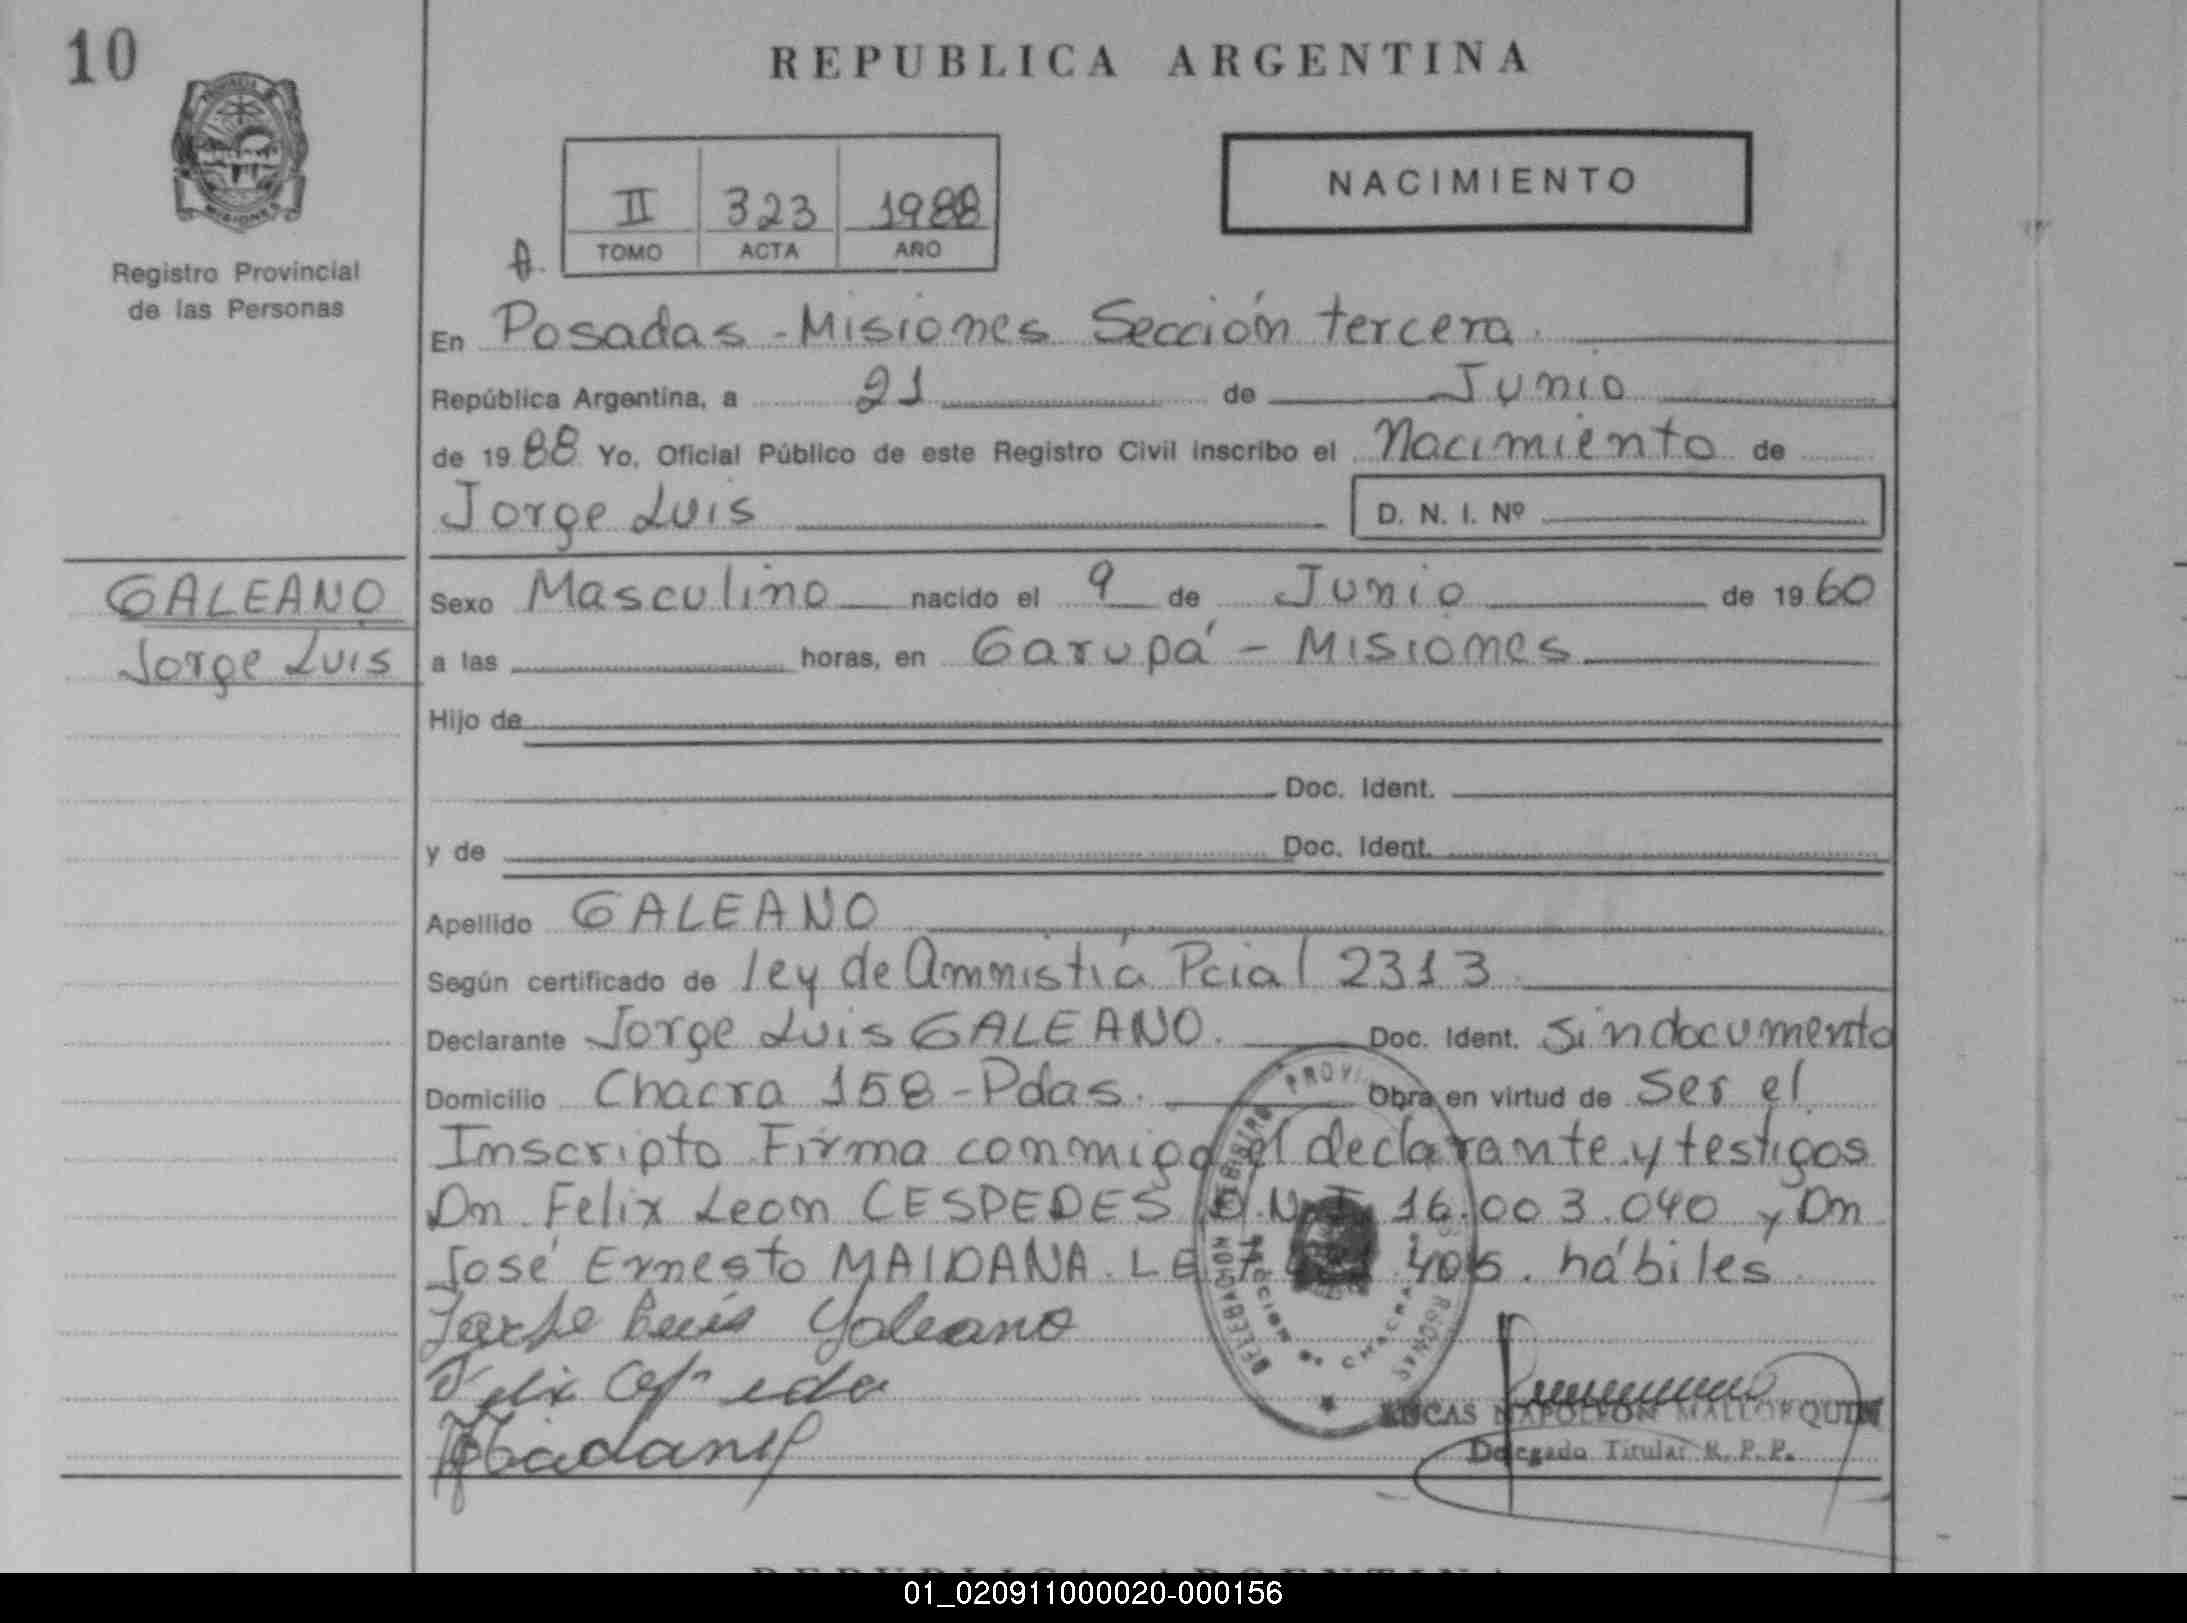 10
REPUBLICA ARGENTINA
NACIMIENTO
II 323 1988
A. TOMO ACTA AÑO
Registro Provincial
de las Personas
En Posadas - Misiones Sección tercera.
República Argentina, a 21 de Junio
de 1988 Yo, Oficial Público de este Registro Civil inscribo el Nacimiento de
Jorge Luis D. N. I. Nº
GALEANO
Jorge Luis
Sexo Masculino nacido el 9 de Junio de 1960
a las horas, en Garupá - Misiones
Hijo de
Doc. Ident.
y de Doc. Ident.
Apellido GALEANO
Según certificado de ley de Amnistía Pcial 2313
Declarante Jorge Luis GALEANO. Doc. Ident. Sin documento
Domicilio Chacra 158 - Pdas. Obra en virtud de Ser el
Inscripto Firma conmigo el declarante y testigos
Dn. Felix Leon CESPEDES D.N.I. 16.003.040 y Dn
José Ernesto MAIDANA. LE 405. hábiles
Jorge Luis Galeano
Felix
LUCAS NAPOLEON MALLORQUIN
Delegado Titular R. P. P.
REPUBLICA ARGENTINA
01_020911000020-000156